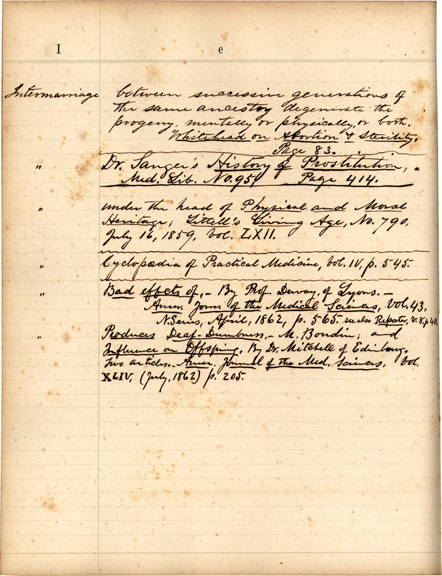 I e
Intermarriage between successive generations of
the same ancestry degenerate the
progeny, mentally or physically, or both.
Whitehead on Abortion & Sterility,
Page 83.
" Dr. Sanger's History of Prostitution,
Med. Lib. No. 951 Page 414.
" under the head of Physical and Moral
Heritage, Littell's Living Age, No. 790,
July 16, 1859. vol. LXII.
" Cyclopædia of Practical Medicine, vol. IV, p. 545.
" Bad effects of, - By Prof. Devay, of Lyons. -
Amer. Journ of the Medical Sciences, vol. 43,
N. Series, April, 1862, p. 565. see also Repister, v. 8, p.
" Produces Deaf-Dumbness. - M. Boudin; and
Influence on Offspring, By Dr. Mitchell of Edinburg.
Two articles. Amer. Journal of the Med. Sciences, Vol.
XLIV, (July, 1862) p. 205.